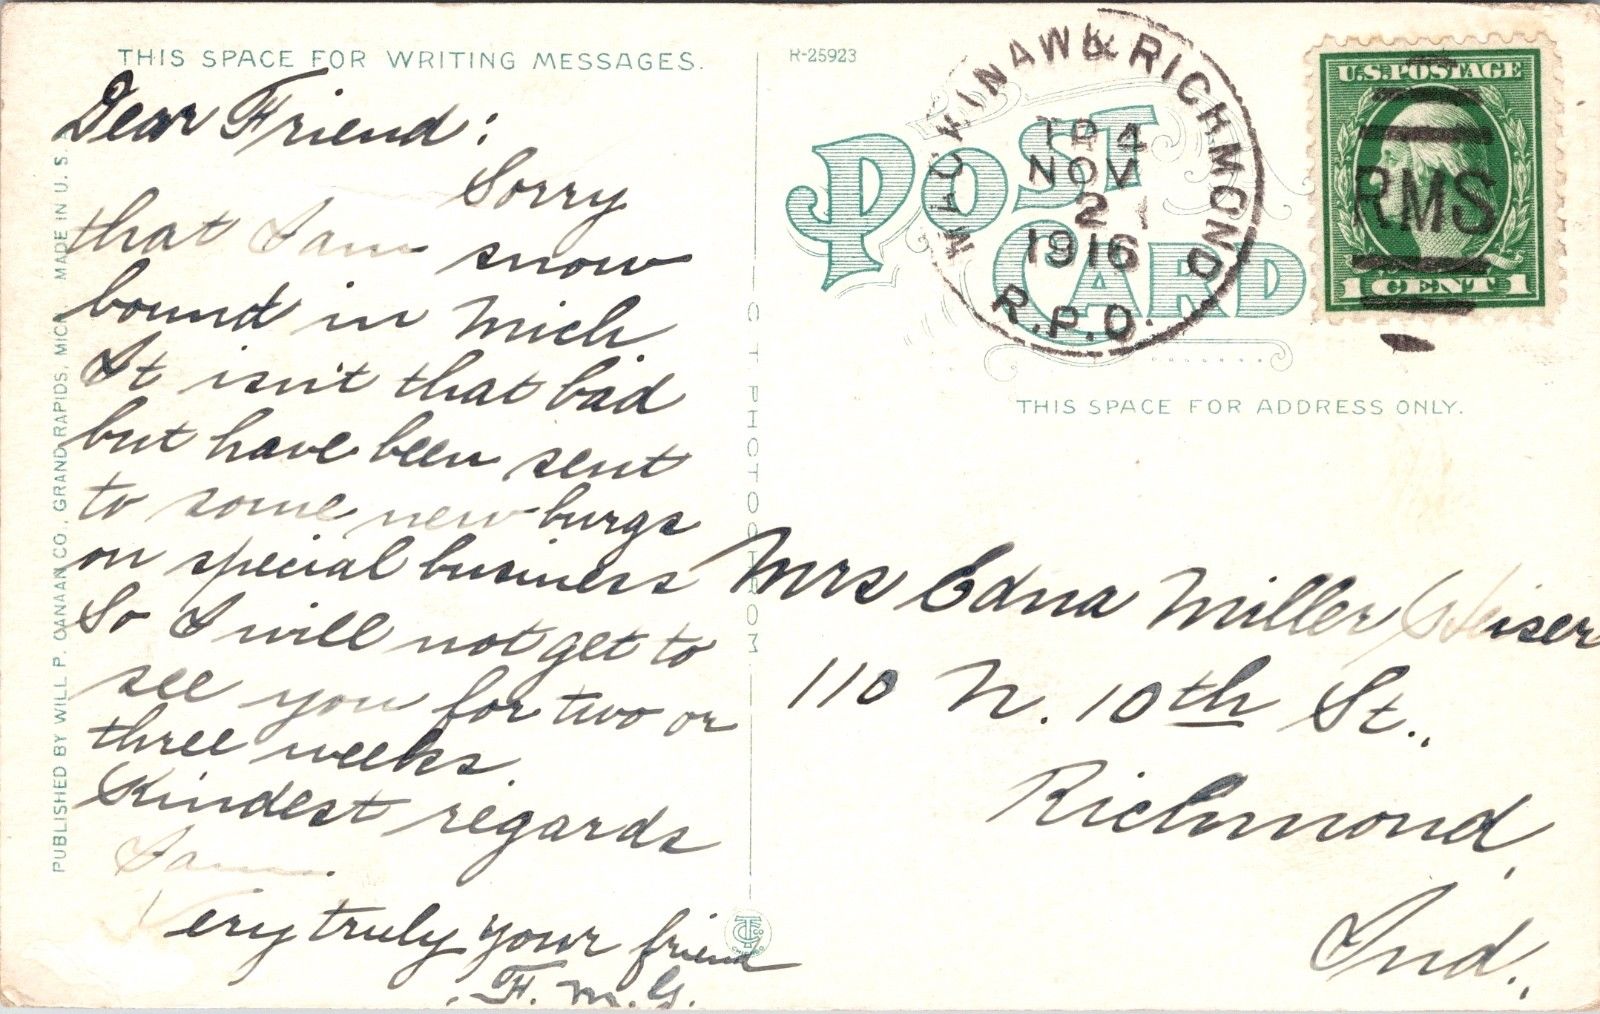 THIS SPACE FOR WRITING MESSAGES.
Dear Friend:
Sorry
that I am snow
bound in Mich
It isn't that bad
but have been sent
to some new burgs
on special business
So I will not get to
see you for two or
three weeks.
Kindest regards
I am.
Very truly your friend
F. M. G.
PUBLISHED BY WILL P. CANAAN CO., GRAND RAPIDS, MICH. MADE IN U. S.
C T PHOTOCHROM
R-25923
POST CARD
MACKINAW & RICHMOND
TR 4
NOV
21
1916
R.P.O.
U.S. POSTAGE
RMS
1 CENT 1
THIS SPACE FOR ADDRESS ONLY.
Mrs Edna Miller Weiser
110 N. 10th St.,
Richmond,
Ind.,